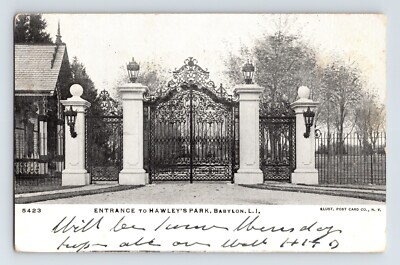 5423 ENTRANCE TO HAWLEY'S PARK, BABYLON, L.I. ILLUST. POST CARD CO., N. Y.
Will be
hope all are Well